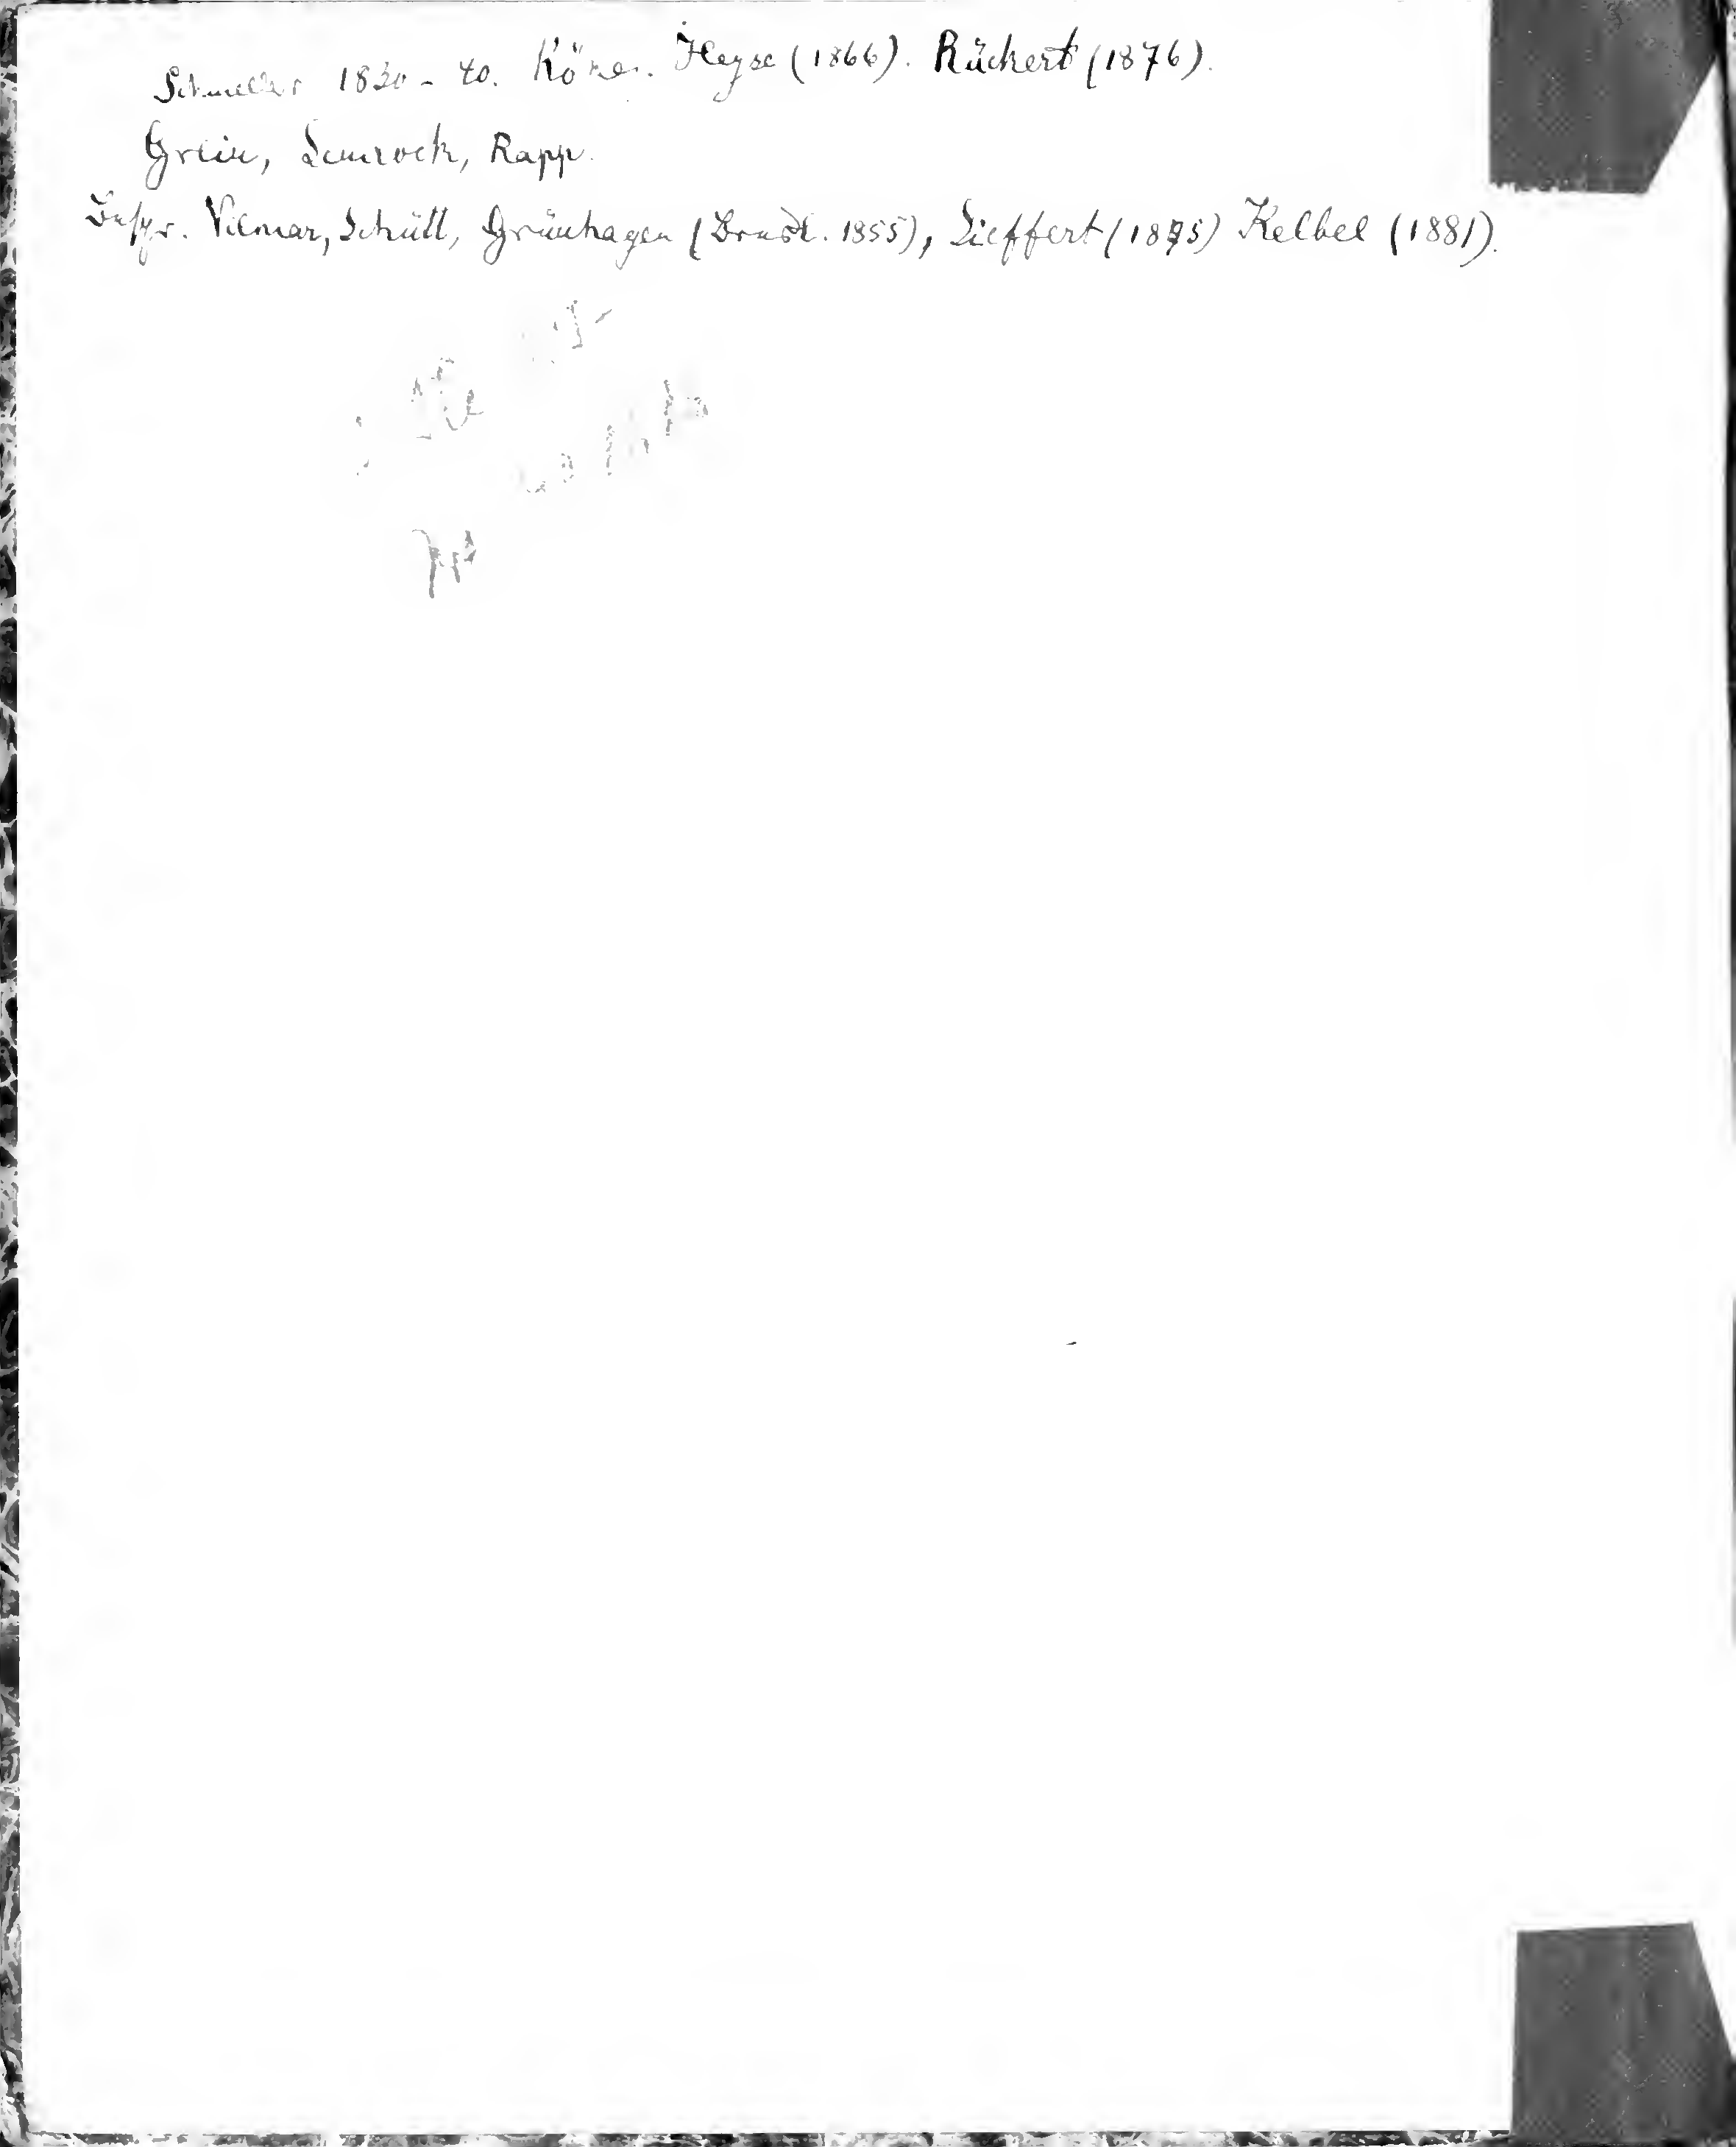 Schmeller 1830 - 40. Köne. Heyse (1866). Rückert (1876).
Grein, Simrock, Rapp.
Bespr. Vilmar, Schütt, Grünhagen (Bresl. 1855), Sieffert (1875) Kelbel (1881).